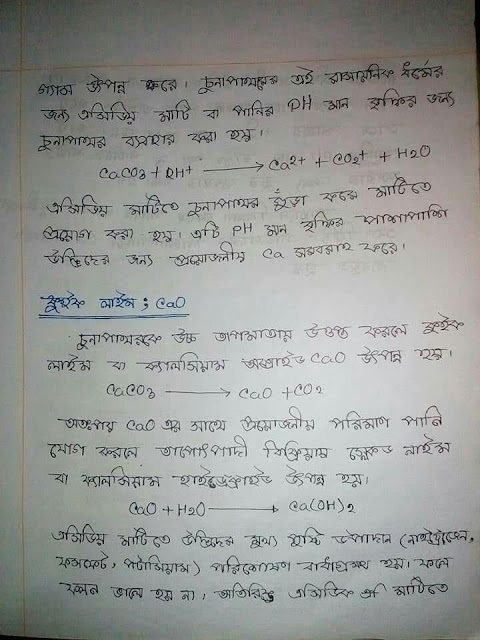 গ্যাস উৎপন্ন করে। চুনাপাথরের এই রাসায়নিক ধর্মের
জন্য এসিডিয় মাটি বা পানির PH মান বৃদ্ধির জন্য
চুনাপাথর ব্যবহার করা হয়।
CaCO3 + 2H+ ⟶ Ca2+ + CO2↑ + H2O
এসিডিয় মাটিতে চুনাপাথর গুঁড়া করে মাটিতে
প্রয়োগ করা হয়। এটি PH মান বৃদ্ধির পাশাপাশি
উদ্ভিদের জন্য প্রয়োজনীয় Ca সরবরাহ করে।
কুইক লাইম ; CaO
চুনাপাথরকে উচ্চ তাপমাত্রায় উত্তপ্ত করলে কুইক
লাইম বা ক্যালসিয়াম অক্সাইড CaO উৎপন্ন হয়।
CaCO3 ⟶ CaO + CO2
অতঃপর CaO এর সাথে প্রয়োজনীয় পরিমাণ পানি
যোগ করলে তাপোৎপাদী বিক্রিয়ায় স্লেকড লাইম
বা ক্যালসিয়াম হাইড্রোক্সাইড উৎপন্ন হয়।
CaO + H2O ⟶ Ca(OH)2
এসিডিয় মাটিতে উদ্ভিদের মুখ্য পুষ্টি উপাদান (নাইট্রোজেন,
ফসফেট, পটাসিয়াম) পরিশোষণ বাধাগ্রস্থ হয়। ফলে
ফলন ভালো হয় না। অতিরিক্ত এসিডিক মাটিতে